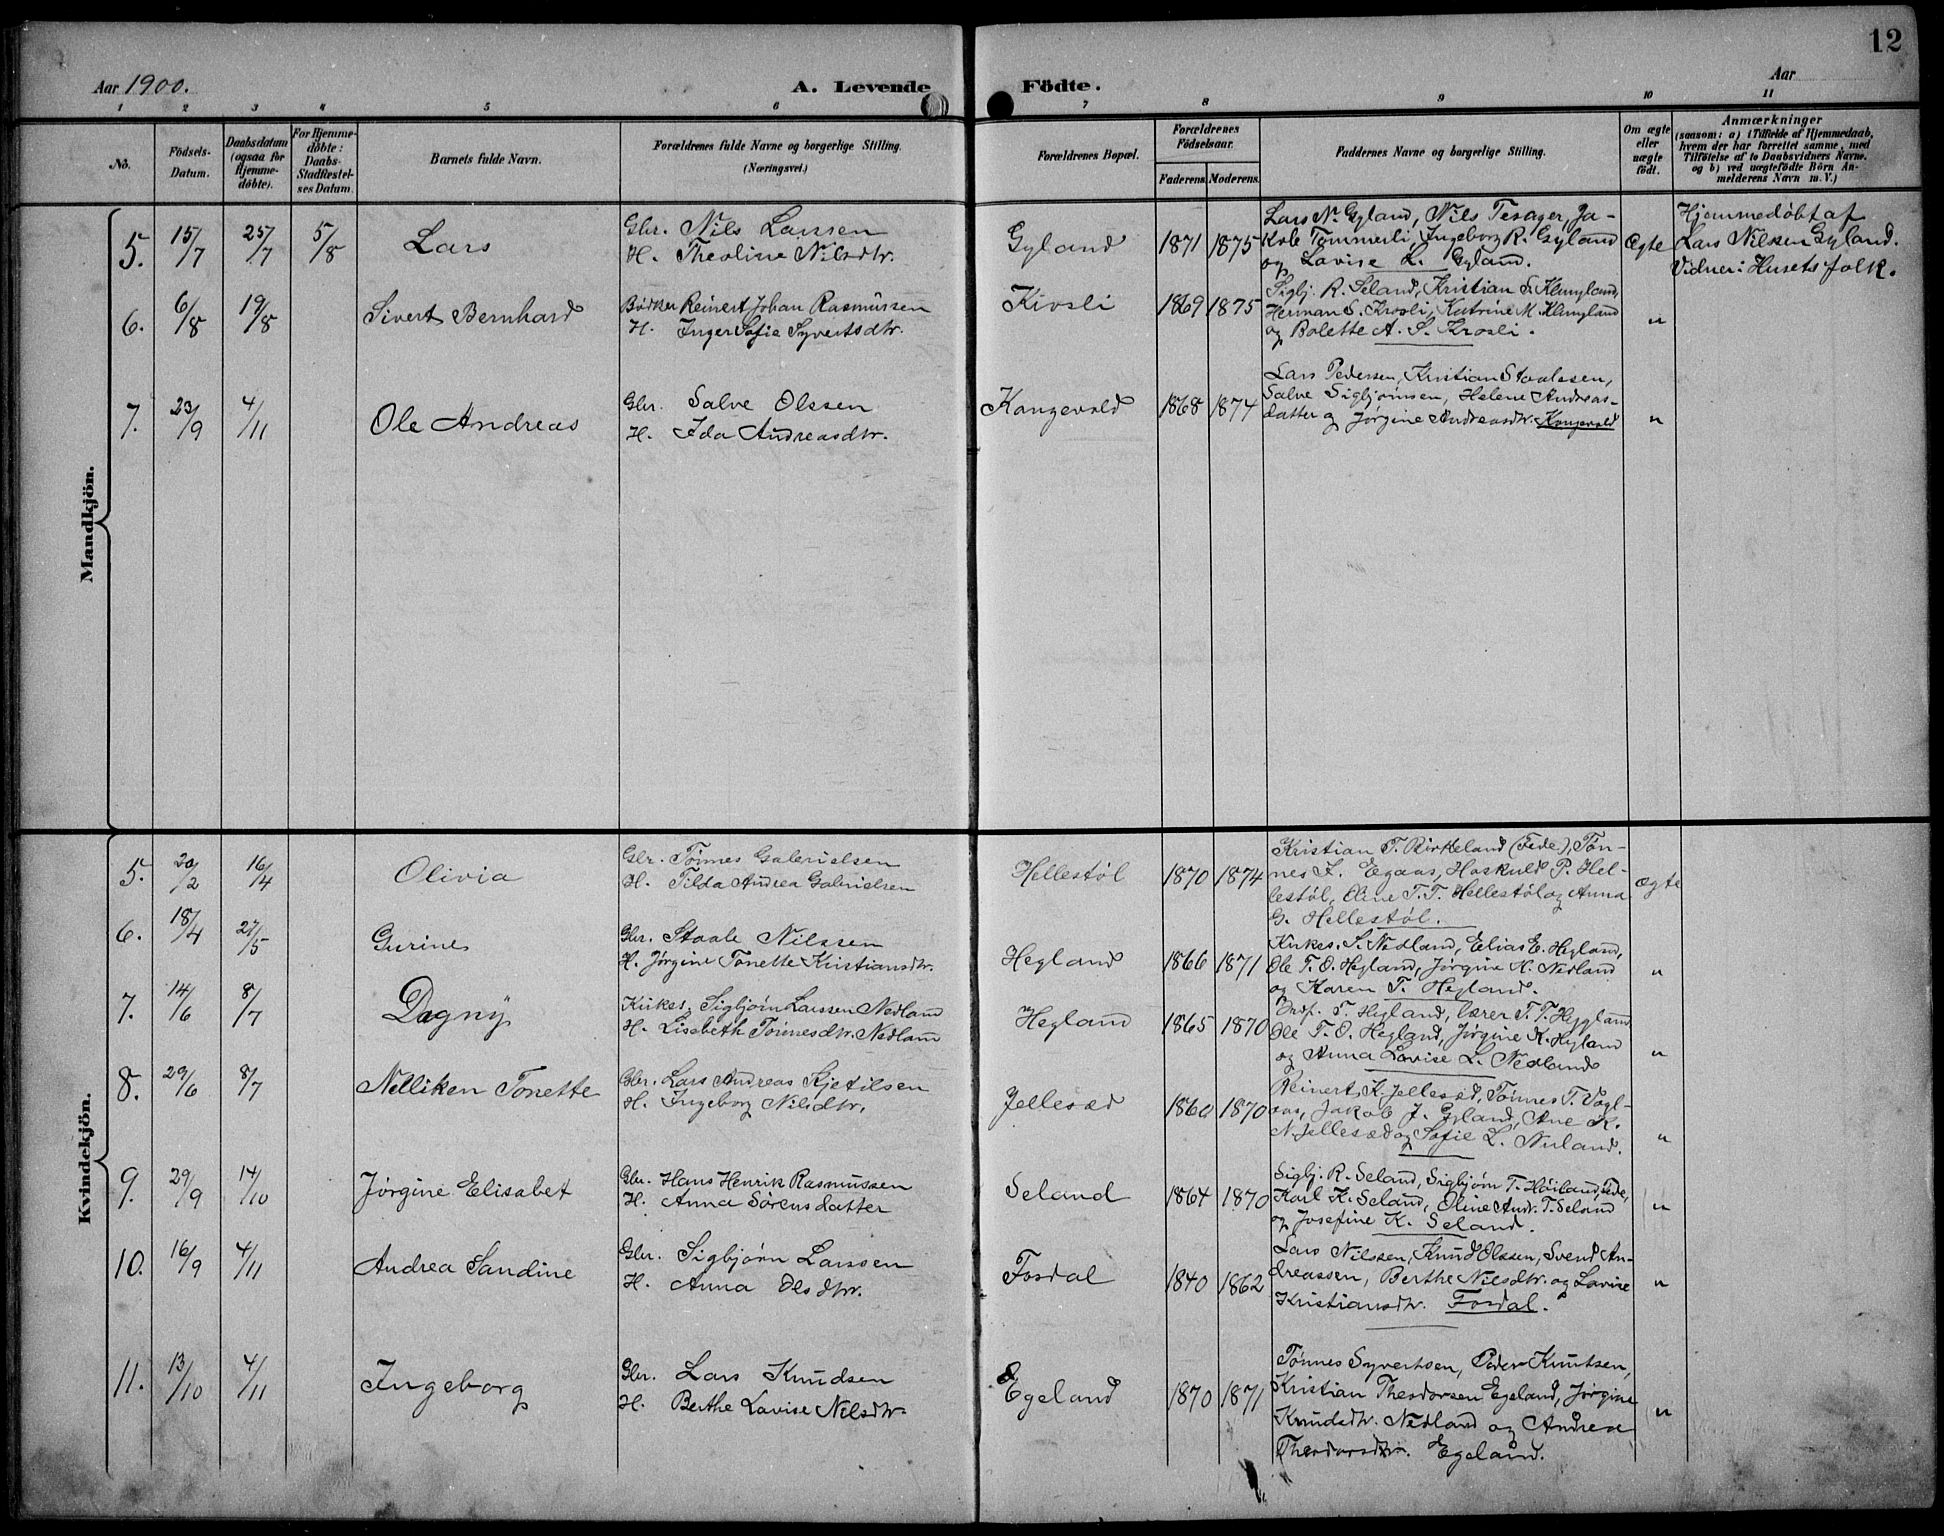 12
Aar 1900.
A. Levende Födte.
Aar
1 2 3 4 5 6 7 8 9 10 11
No.
Födsels-Datum.
Daabsdatum (ogsaa for Hjemme-døbte).
For Hjemme-døbte: Daabs-Stadfæstel-ses Datum.
Barnets fulde Navn.
Forældrenes fulde Navne og borgerlige Stilling. (Næringsvei.)
Forældrenes Bopæl.
Forældrenes Födselsaar.
Faderens. Moderens.
Faddernes Navne og borgerlige Stilling.
Om ægte eller uægte födt.
Anmærkninger
(saasom: a) i Tilfælde af Hjemmedaab,
hvem der har forrettet samme, med
Tilföielse af to Daabsvidners Navne.
og b) ved uægtefödte Börn An-
melderens Navn m. V.)
Mandkjön.
5. 15/7 25/7 5/8 Lars
Gbr. Nils Larssen
H. Theoline Nilsdtr.
Gyland 1871 1875
Lars N. Gyland, Nils Tesager, Ja-
kob Tømmerli, Ingeborg R. Gyland
og Lovise L. Gyland.
Ægte
Hjemmedøbt af
Lars Nilssen Gyland.
Vidner: Husets folk.
6. 6/8 19/8 Sivert Bernhard
Bødker Reinert Johan Rasmussen
H. Inger Sofie Syvertsdtr.
Kvosli 1869 1875
Sigbj. R. Seland, Kristian S. Klungland,
Herman S. Krosli, Katrine M. Klungland
og Bolette A. S. Krosli.
"
7. 23/9 4/11 Ole Andreas
Gbr. Salve Olssen
H. Ida Andreasdtr.
Kongevold 1868 1874
Lars Pedersen, Kristian Staalesen,
Salve Sigbjørnsen, Helene Andreas-
datter og Jørgine Andreasdtr. Kongevold
"
Kvindekjön.
5. 20/2 16/4 Olivia
Gbr. Tønnes Gabrielsen
H. Tilda Andrea Gabrielsen
Hellestøl 1870 1874
Kristian T. Birkeland (Fede), Tøn-
nes I. Egaas, Haskuld P. Hel-
lestøl, Oline T. T. Hellestøl og Anna
G. Hellestøl.
Ægte
6. 18/4 27/5 Gurine
Gbr. Staale Nilssen
H. Jørgine Tonette Kristiansdtr.
Hegland 1866 1871
Kirkes. S. Nedland, Elias E. Hegland,
Ole T. O. Hegland, Jørgine H. Nedland
og Karen T. Hegland.
"
7. 14/6 8/7 Dagny
Kirkes. Sigbjørn Larssen Nedland
H. Lisebeth Tønnesdtr. Nedland
Hegland 1865 1870
T. Hegland, Lærer T. T. Heggland
Ole T. O. Hegland, Jørgine K. Hegland
og Anna Lovise L. Nedland
"
8. 29/6 8/7 Nelliken Tonette
Gbr. Lars Andreas Kjetilsen
H. Ingeborg Nilsdtr.
Jellesæd 1860 1870
Reinert K. Jellesæd, Tønnes T. Vogl-
aas, Jakob J. Gyland, Ane K.
N. Jellesæd og Sofie L. Nuland.
"
9. 29/9 14/10 Jørgine Elisabet
Gbr. Hans Henrik Rasmussen
H. Anna Sørensdatter
Seland 1864 1870
Sigbj. R. Seland, Sigbjørn T. Høiland, Fede,
Karl K. Seland, Oline Andr. T. Seland
og Josefine K. Seland.
"
10. 16/9 4/11 Andrea Sandine
Gbr. Sigbjørn Larssen
H. Anna Olsdtr.
Fosdal 1840 1862
Lars Nilssen, Knud Olssen, Svend An-
dreassen, Berthe Nilsdtr. og Lovise
Kristiansdtr. Fosdal.
"
11. 13/10 4/11 Ingeborg
Gbr. Lars Knudsen
H. Berthe Lovise Nilsdtr.
Egeland 1870 1871
Tønnes Syvertsen, Peder Knutsen,
Kristian Theodorsen Egeland, Jørgine
Knudsdtr. Nedland og Andrea
Theodorsdtr. Egeland.
"